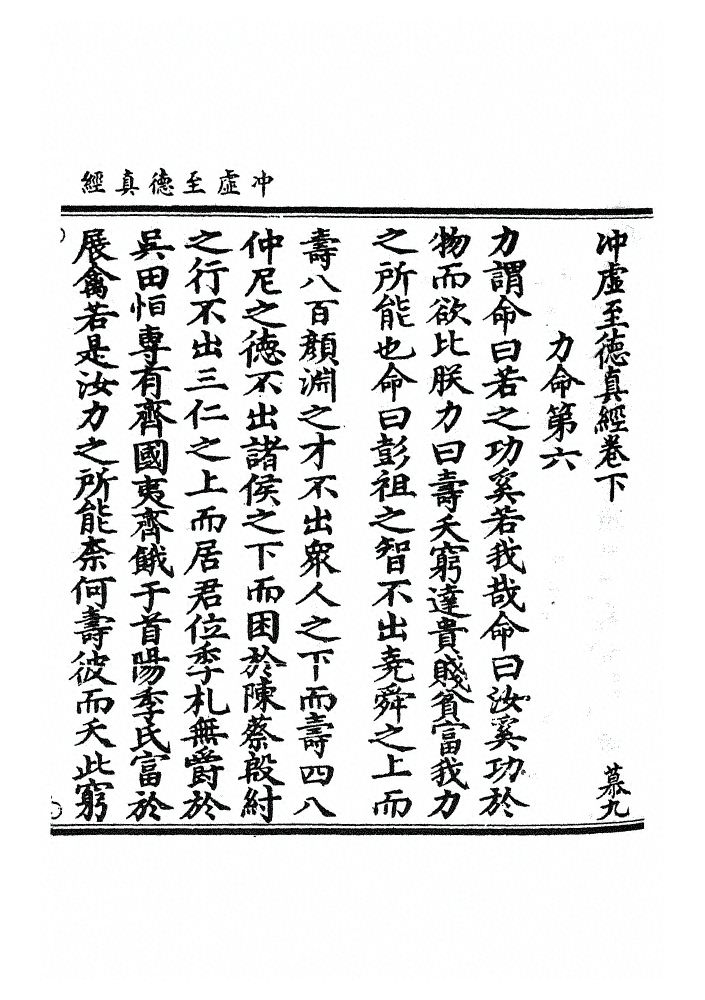 冲虛至德真經
冲虛至德真經卷下 慕九
力命第六
力謂命曰若之功奚若我哉命曰汝奚功於
物而欲比朕力曰壽夭窮達貴賤貧富我力
之所能也命曰彭祖之智不出堯舜之上而
壽八百顏淵之才不出衆人之下而壽四八
仲尼之德不出諸侯之下而困於陳蔡殷紂
之行不出三仁之上而居君位季札無爵於
吳田恒專有齊國夷齊餓于首陽季氏富於
展禽若是汝力之所能柰何壽彼而夭此窮